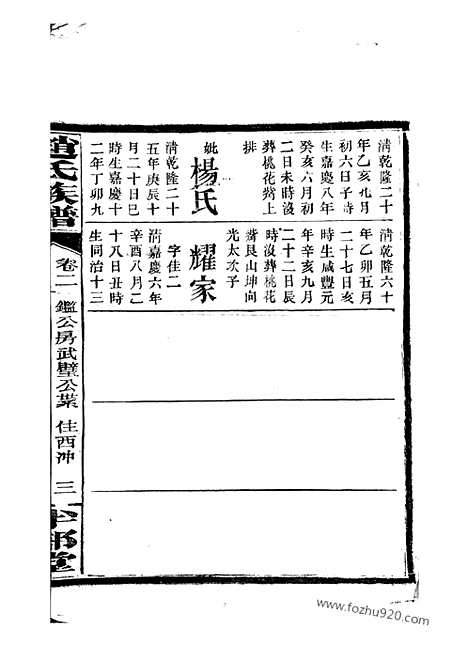 清乾隆二十
年乙亥九月
初六日子時
生嘉慶八年
癸亥六月初
二日未時沒
葬桃花嘴上
排
妣楊氏
清乾隆二十
五年庚辰十
月二十日巳
時生嘉慶十
二年丁卯九
清乾隆六十
年乙卯五月
二十七日亥
時生咸豐元
年辛亥九月
二十二日辰
時沒葬桃花
嘴艮山坤向
光太次子
耀家
字佳二
清嘉慶六年
辛酉八月二
十八日丑時
生同治十三
趙氏族譜
卷二
鑑公房武璧公業
住西沖
三
半部堂
www.fozhu920.com